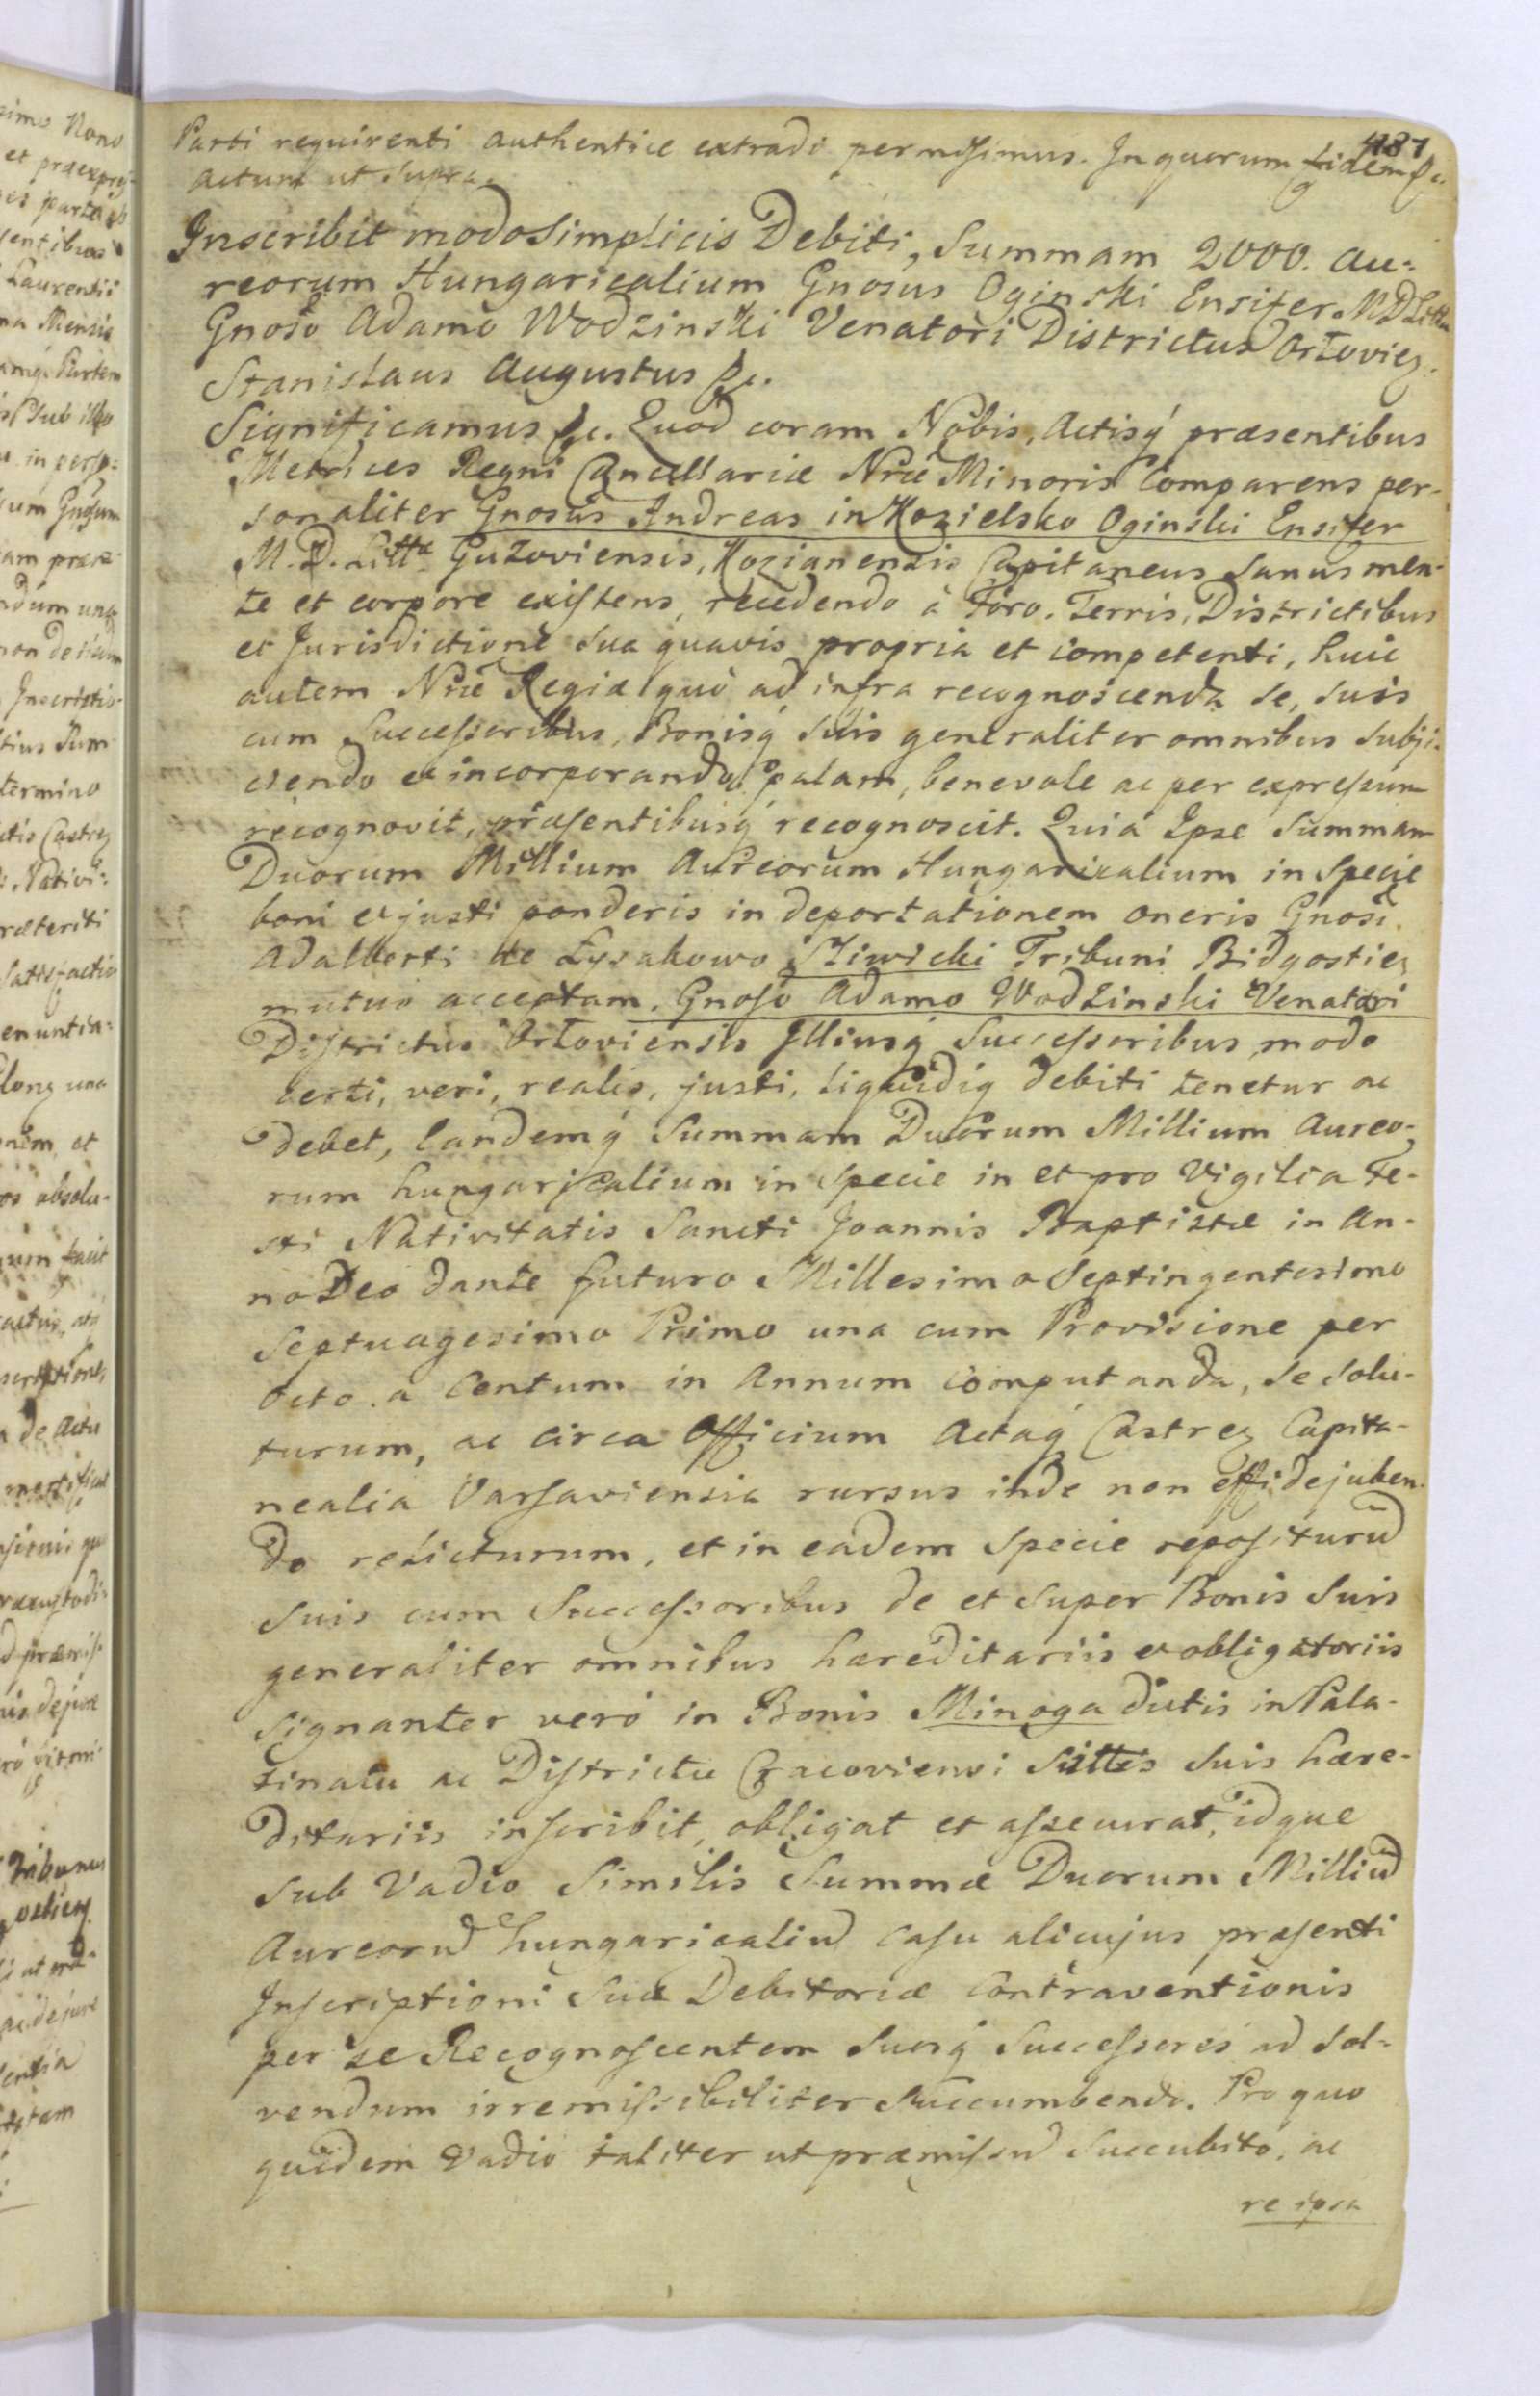 487
Parti requirenti authentice extradi permisimus. In quorum fidem &c.
actum ut supra.
Inscribit modo simplicis Debiti, Summam 2000. au=
reorum Hungaricalium Gnosus Oginski Ensifer M D Litt
Gnoso Adamo Wodzinski Venatori Districtus Orłovien.
Stanislaus Augustus &c.
Significamus &c. Quod coram Nobis, Actisq præsentibus
Metrices Regni Cancellariæ Nræ Minoris Comparens per-
sonaliter Gnosus Andreas in Kozielsko Oginski Ensifer
M. D. Littæ Guzoviensis, Kozianensis Capitaneus sanus men-
te et corpore existens, recedendo à Foro, Terris, Districtibus
et Jurisdictione sua quavis propria et competenti, huic
autem Nræ Regiæ quò ad infra recognoscenda se, suis
cum Successoribus, Bonisq suis generaliter omnibus subji-
ciendo et incorporando, palam, benevole ac per expressum
recognovit, præsentibusq recognoscit. Quia Ipse Summam
Duorum Millium Aureorum Hungaricalium in specie
boni et justi ponderis in deportationem oneris Gnosi
Adalberti de Łysakowo Sliwicki Tribuni Bidgostien
mutuo acceptam, Gnoso Adamo Wodzinski Venatori
Districtus Orłoviensis Illiusq Successoribus modo
certi, veri, realis, justi, liquidiq debiti tenetur ac
debet, Eandemq Summam Duorum Millium Aureo-
rum hungaricalium in specie in et pro Vigilia Fe-
sti Nativitatis Sancti Joannis Baptistæ in An-
no Deo dante futuro Millesimo Septingentesimo
Septuagesimo Primo una cum Provisione per
octo a Centum in Annum computanda, se solu-
turum, ac circa Officium Actaq Castren Capita-
nealia Varsaviensia rursus inde non effidejuben-
do relicturum, et in eadem specie repositurum
suis cum Successoribus de et super Bonis suis
generaliter omnibus hæreditariis et obligatoriis
signanter vero in Bonis Minoga dictis in Pala-
tinatu ac Districtu Cracoviensi sittis suis hære-
ditariis inscribit, obligat et assecurat, idque
sub Vadio similis Summæ Duorum Millium
Aureorum hungaricalium casu alicujus præsenti
Inscriptioni suæ Debitoriæ contraventionis
per se Recognoscentem suosq Successores ad sol-
vendum irremissibiliter succumbendo. Pro quo
quidem Vadio taliter ut præmissum succubito, ac
re ipsa